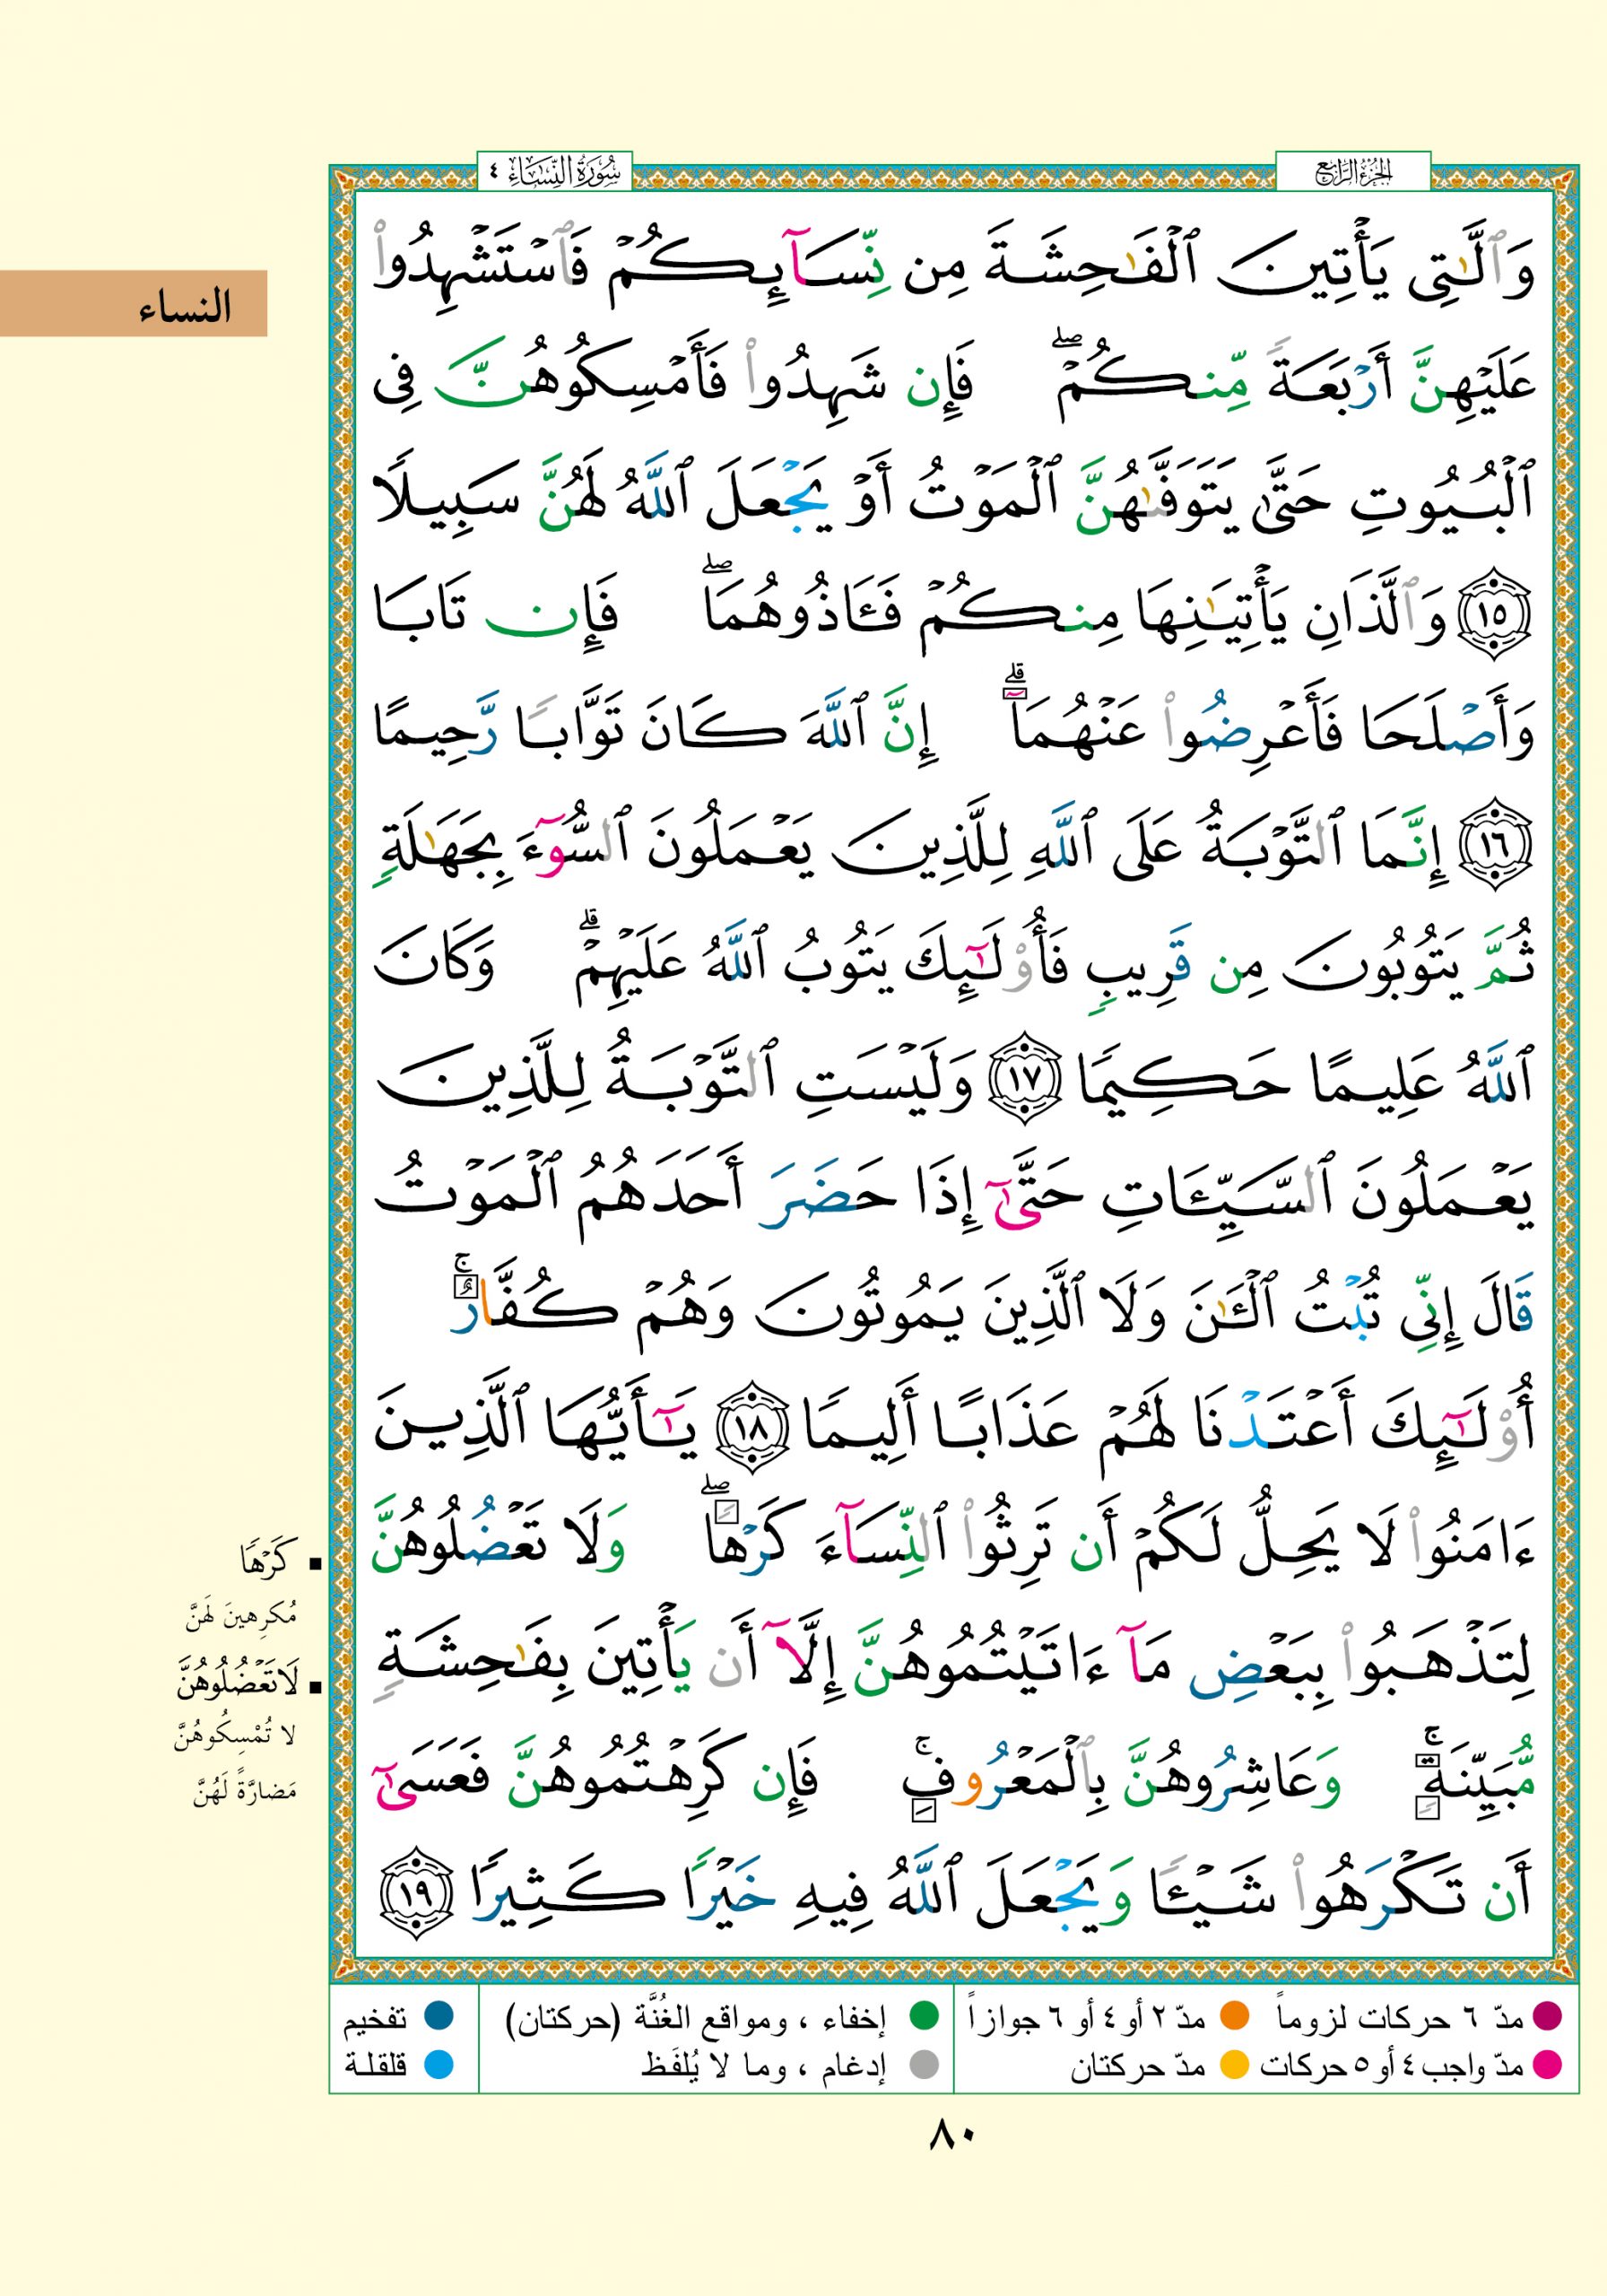 الجزء الرابع
سورة النساء ٤
النساء
وَٱلَّٰتِى يَأْتِينَ ٱلْفَٰحِشَةَ مِن نِّسَآئِكُمْ فَٱسْتَشْهِدُوا۟
عَلَيْهِنَّ أَرْبَعَةً مِّنكُمْ ۖ فَإِن شَهِدُوا۟ فَأَمْسِكُوهُنَّ فِى
ٱلْبُيُوتِ حَتَّىٰ يَتَوَفَّىٰهُنَّ ٱلْمَوْتُ أَوْ يَجْعَلَ ٱللَّهُ لَهُنَّ سَبِيلًا
١٥ وَٱلَّذَانِ يَأْتِيَٰنِهَا مِنكُمْ فَـَٔاذُوهُمَا ۖ فَإِن تَابَا
وَأَصْلَحَا فَأَعْرِضُوا۟ عَنْهُمَآ ۗ إِنَّ ٱللَّهَ كَانَ تَوَّابًا رَّحِيمًا
١٦ إِنَّمَا ٱلتَّوْبَةُ عَلَى ٱللَّهِ لِلَّذِينَ يَعْمَلُونَ ٱلسُّوٓءَ بِجَهَٰلَةٍ
ثُمَّ يَتُوبُونَ مِن قَرِيبٍ فَأُو۟لَٰٓئِكَ يَتُوبُ ٱللَّهُ عَلَيْهِمْ ۗ وَكَانَ
ٱللَّهُ عَلِيمًا حَكِيمًا ١٧ وَلَيْسَتِ ٱلتَّوْبَةُ لِلَّذِينَ
يَعْمَلُونَ ٱلسَّيِّـَٔاتِ حَتَّىٰٓ إِذَا حَضَرَ أَحَدَهُمُ ٱلْمَوْتُ
قَالَ إِنِّى تُبْتُ ٱلْـَٰٔنَ وَلَا ٱلَّذِينَ يَمُوتُونَ وَهُمْ كُفَّارٌ ۚ
أُو۟لَٰٓئِكَ أَعْتَدْنَا لَهُمْ عَذَابًا أَلِيمًا ١٨ يَٰٓأَيُّهَا ٱلَّذِينَ
ءَامَنُوا۟ لَا يَحِلُّ لَكُمْ أَن تَرِثُوا۟ ٱلنِّسَآءَ كَرْهًا ۖ وَلَا تَعْضُلُوهُنَّ
لِتَذْهَبُوا۟ بِبَعْضِ مَآ ءَاتَيْتُمُوهُنَّ إِلَّآ أَن يَأْتِينَ بِفَٰحِشَةٍ
مُّبَيِّنَةٍ ۚ وَعَاشِرُوهُنَّ بِٱلْمَعْرُوفِ ۚ فَإِن كَرِهْتُمُوهُنَّ فَعَسَىٰٓ
أَن تَكْرَهُوا۟ شَيْـًٔا وَيَجْعَلَ ٱللَّهُ فِيهِ خَيْرًا كَثِيرًا ١٩
▪ كَرْهًا
مُكرِهينَ لَهنَّ
▪ لَا تَعْضُلُوهُنَّ
لا تُمْسِكُوهُنَّ
مَضارَّةً لَهُنَّ
● مدّ ٦ حركات لزوماً ● مدّ ٢ أو ٤ أو ٦ جوازاً ● إخفاء ، ومواقع الغُنَّة (حركتان) ● تفخيم
● مدّ واجب ٤ أو ٥ حركات ● مدّ حركتان ● إدغام ، وما لا يُلفَظ ● قلقلة
٨٠